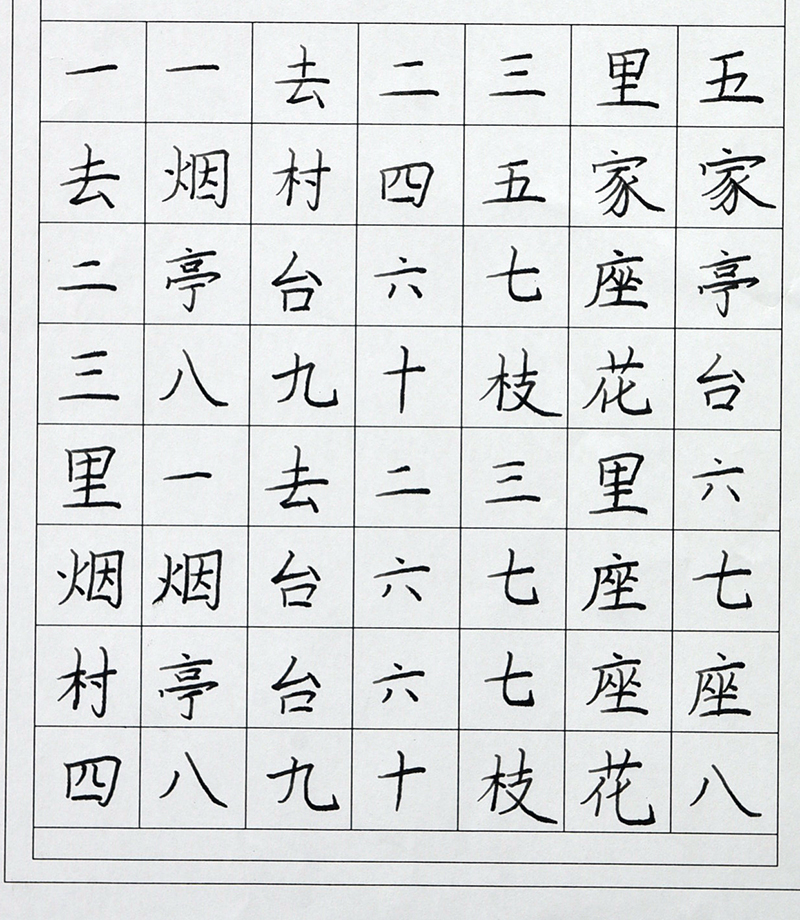 一一去二三里五
去烟村四五家家
二亭台六七座亭
三八九十枝花台
里一去二三里六
烟烟台六七座七
村亭台六七座座
四八九十枝花八